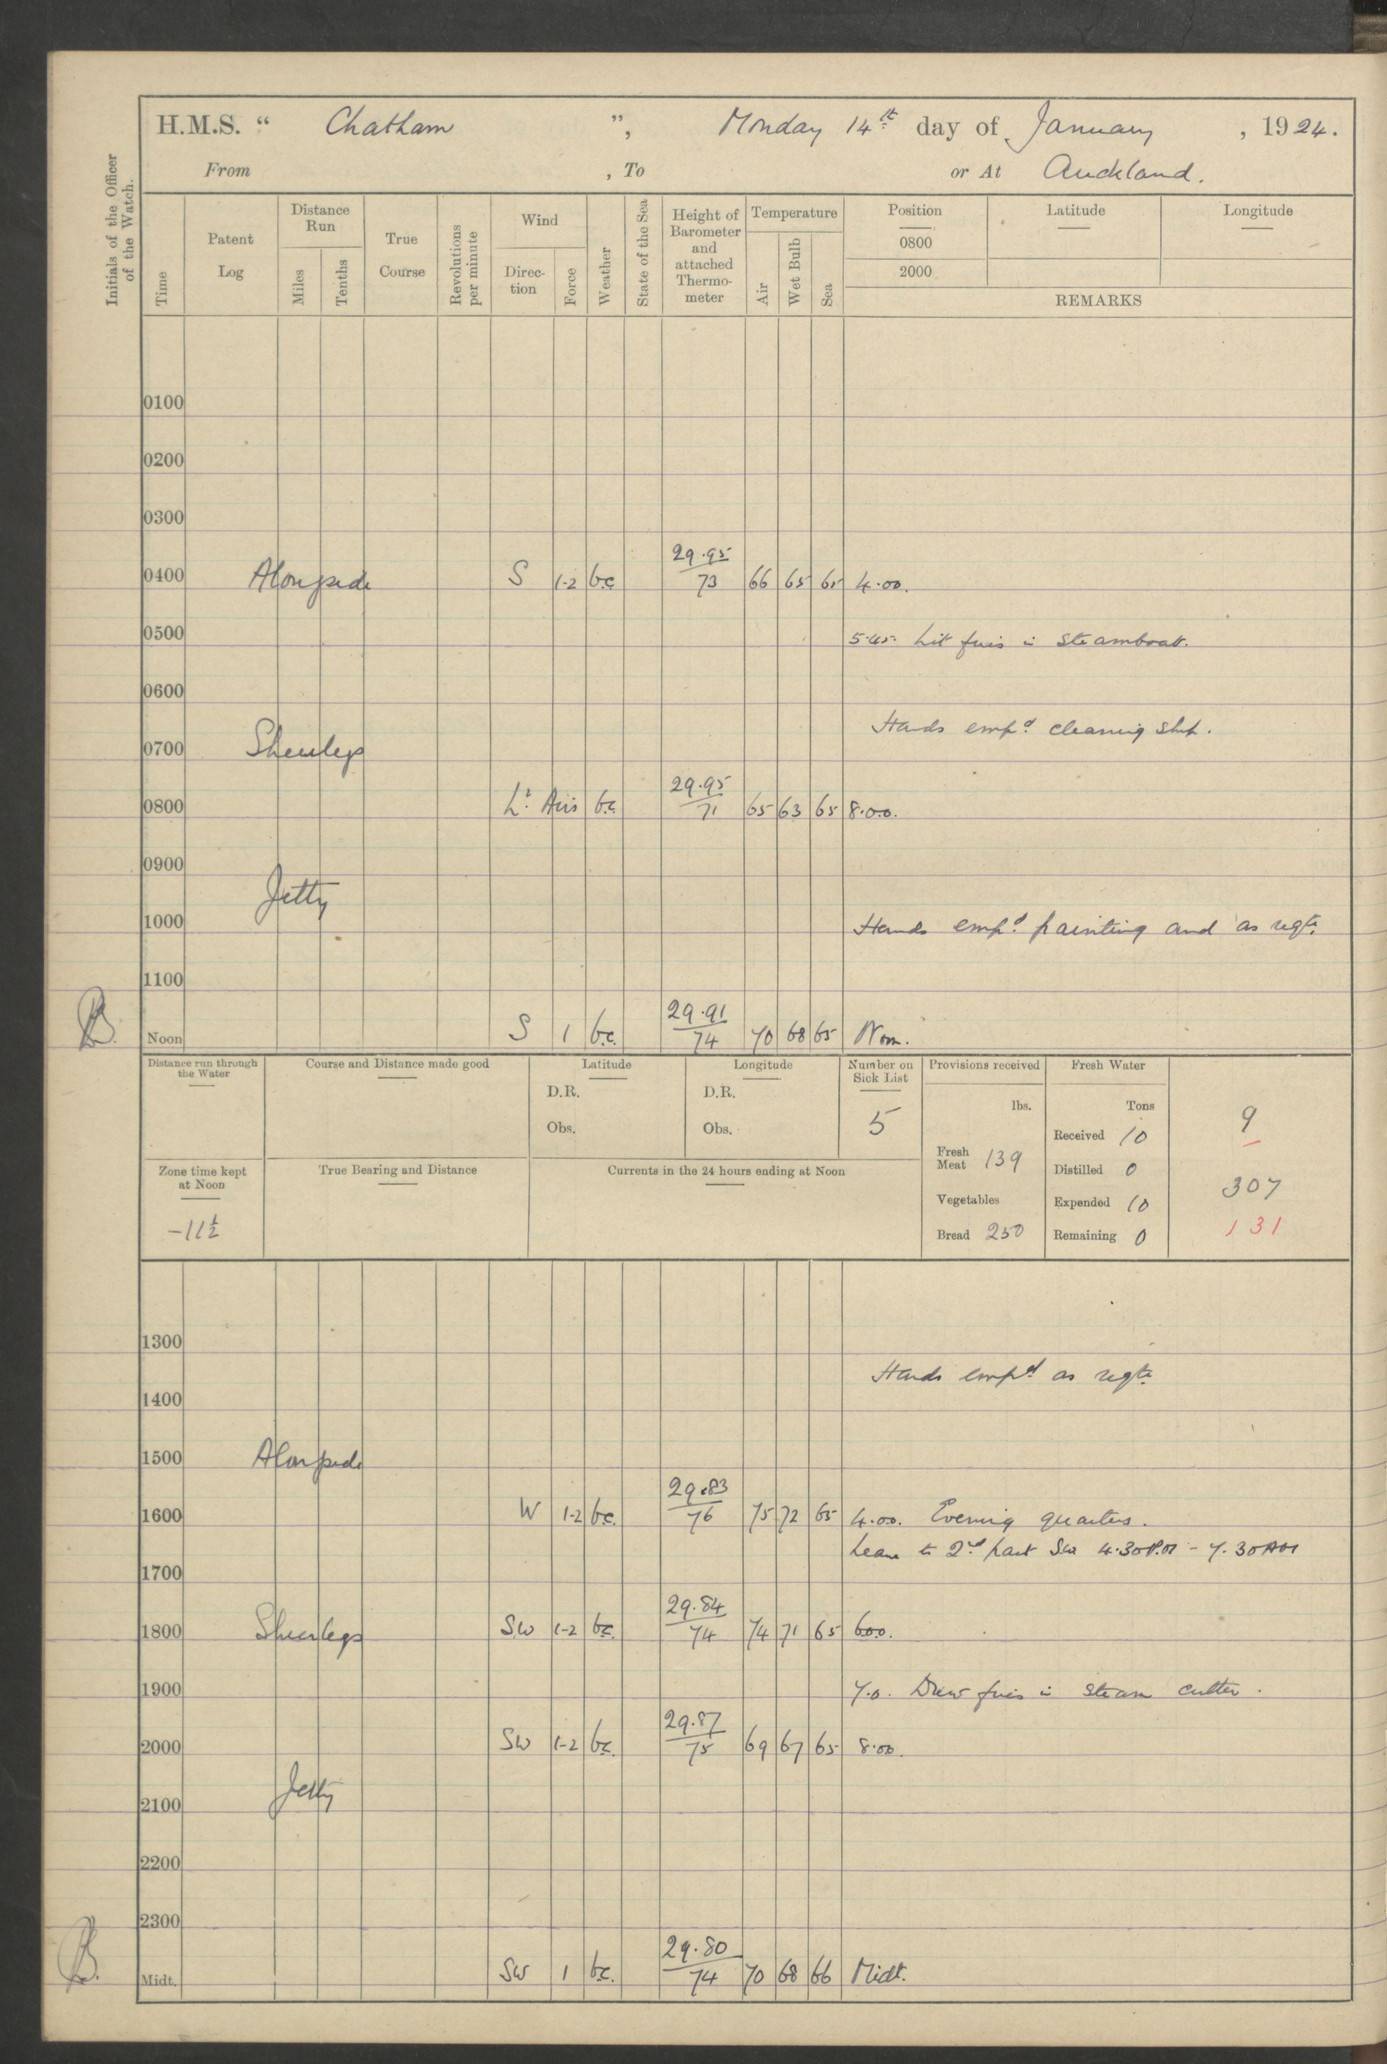 H.M.S. “ Chatham ”, Monday 14th day of January, 1924.
From , To or At Auckland.
Initials of the Officer of the Watch.
Time
Patent Log
Distance Run
Miles
Tenths
True Course
Revolutions per minute
Wind
Direc-tion
Force
Weather
State of the Sea
Height of Barometer and attached Thermo-meter
Temperature
Air
Wet Bulb
Sea
Position Latitude Longitude
0800
2000
REMARKS
0100
0200
0300
0400 Alongside S 1-2 bc 29.95/73 66 65 65 4.00.
0500
5.45 Lit fires in Steamboat.
0600
Hands empd. cleaning ship.
0700 Sheerlegs
0800 Lt. Airs bc 29.95/71 65 63 65 8.0.0.
0900
Jetty
1000 Hands empd. painting and as reqte.
1100
Noon S 1 bc. 29.91/74 70 68 65 Noon.
Distance run through the Water
Course and Distance made good
Latitude
D.R.
Obs.
Longitude
D.R.
Obs.
Number on Sick List
5
Provisions received
lbs.
Fresh Meat 139
Vegetables
Bread 250
Fresh Water
Tons
Received 10
Distilled 0
Expended 10
Remaining 0
9
307
131
Zone time kept at Noon
-11½
True Bearing and Distance
Currents in the 24 hours ending at Noon
1300
Hands empd as reqte.
1400
1500 Alongside
1600 W 1-2 bc. 29.83/76 75 72 65 4.00. Evening quarters.
Leave to 2nd part SW 4.30 P.M - 7.30 AM
1700
1800 Sheerlegs SW 1-2 bc. 29.84/74 74 71 65 6.0.0.
1900 7.0. Drew fires in steam cutter.
2000 SW 1-2 bc. 29.87/75 69 67 65 8.00.
Jetty
2100
2200
2300
Midt. SW 1 bc. 29.80/74 70 68 66 Midt.